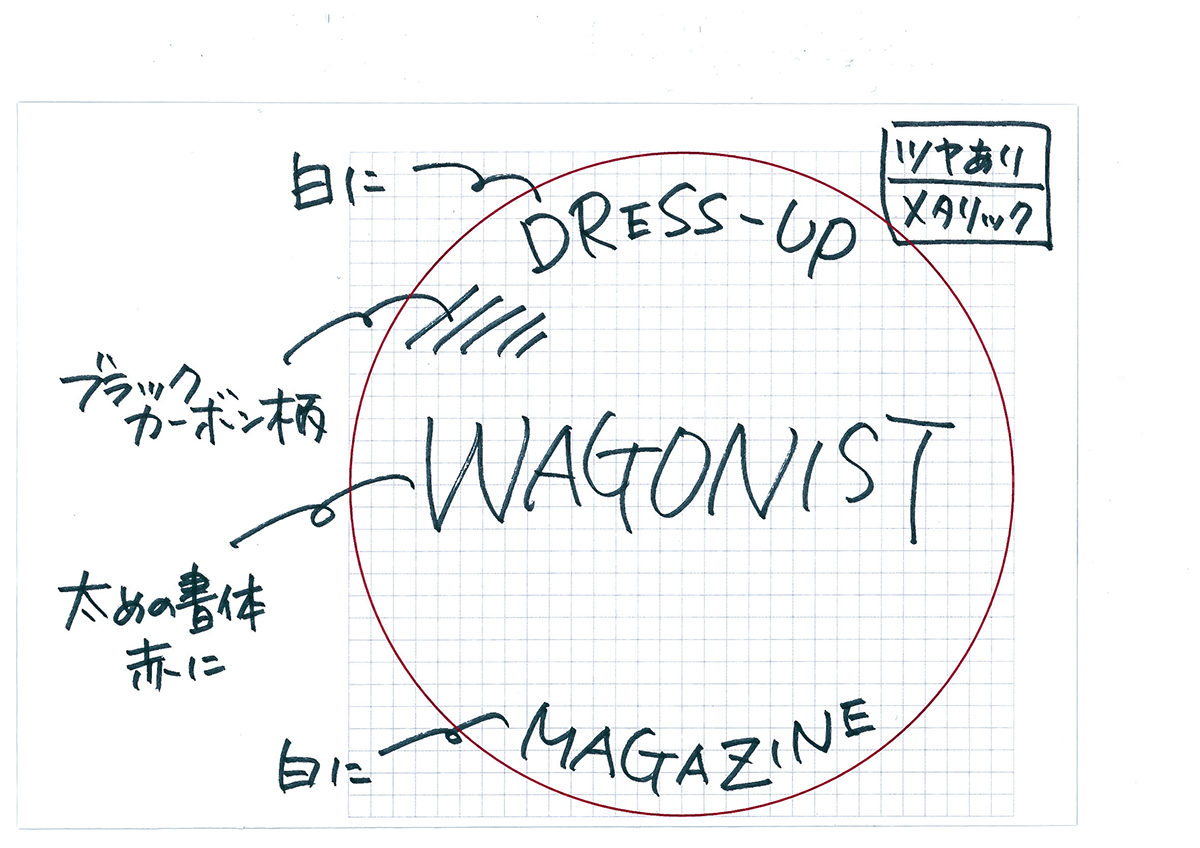 ツヤあり
メタリック
白に
DRESS-UP
ブラック
カーボン柄
WAGONIST
太めの書体
赤に
白に
MAGAZINE